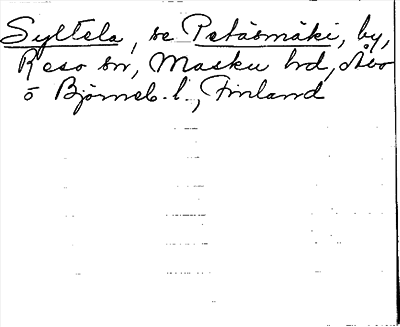 Syltela, se Petäsmäki, by,
Reso sn, Masku hd, Åbo
o Björneb. l., Finland